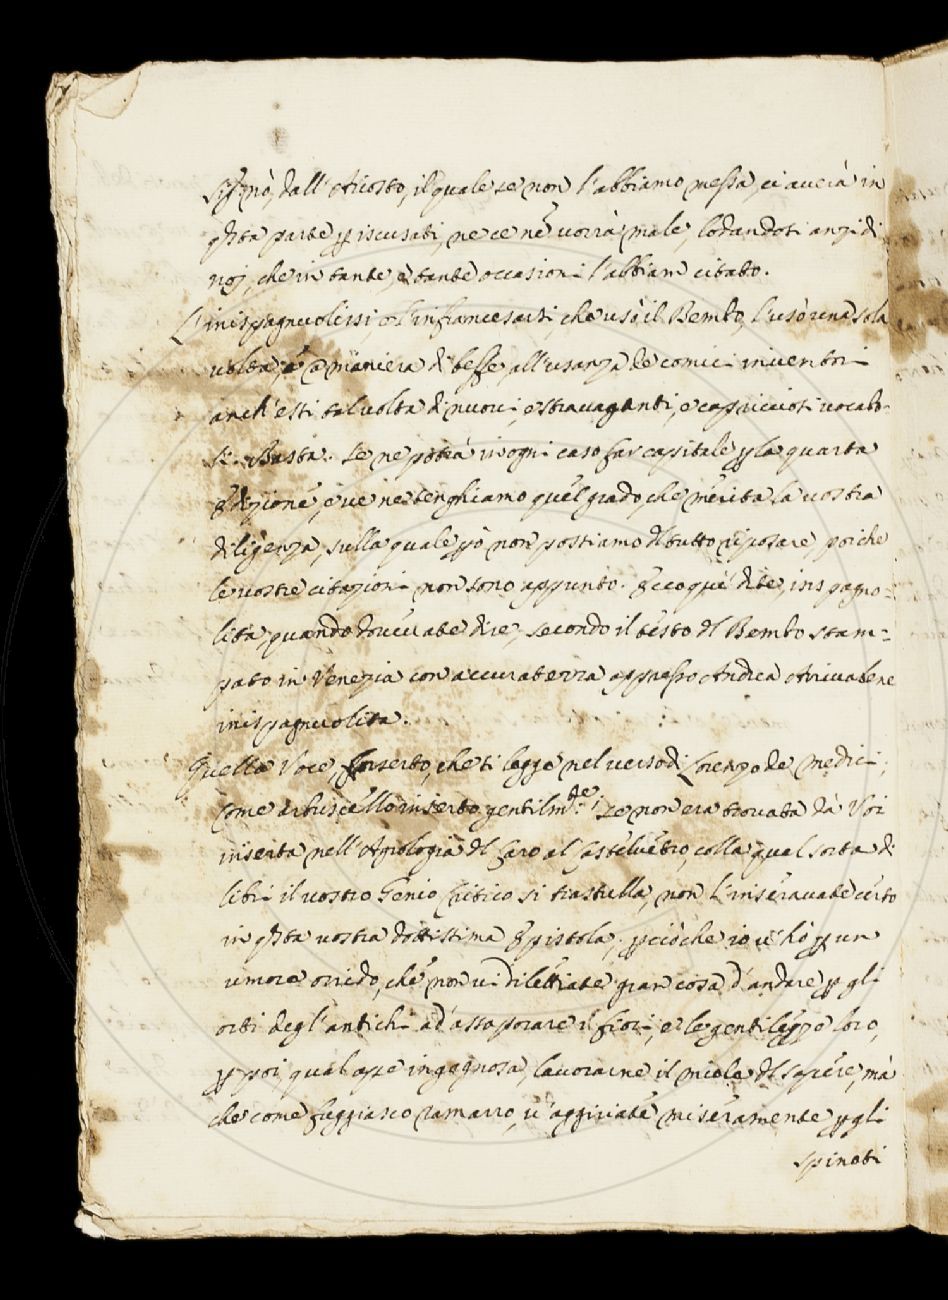 Sig.r nò, dall'Ariosto, il quale se non l'abbiamo messa, ci averà in
q̃sta parte p iscusati, ne ce ne vorrà male, lodandosi anzi di
noi, che in tante, e tante occasioni l'abbiam citato.
L'inispagnuolirsi, e l'infrancesarsi, che usò il Bembo, l'usò una sola
volta, e a maniera di beffe, all'usanza de comici inventori
anch'essi talvolta di nuovi, e stravaganti, e capricciosi vocabo-
li. Basta. Se ne potrà in ogni caso far capitale p la quarta
Edizione, e ve ne tenghiamo quel grado, che merita la vostra
diligenza, sulla quale pò non possiamo del tutto riposare, poiche
le vostre citazioni non sono appunto. Ecco quì dite, inispagno=
lita, quando dovevate dire, secondo il testo del Bembo stam=
pato in Venezia con accuratezza appresso Andrea Arivabene
inispagnuolita.
Quella Voce, Inserto, che si legge nel verso di Lorenzo de Medici,
Come arbuscello inserto gentilm.te, se non era trovata dà Voi
inserita nell'Apologia del Caro al Castelvetro, colla qual sorta di
libri il vostro Genio Critico si trastulla, non l'inseravate certo
in q̃sta vostra dottissima Epistola, pciòche io v'hò p un
umore orrido, che non vi dilettiate gran cosa d'andare p gli
orti degl'antichi ad assaporare i fiori, e le gentilezze loro,
p poi, qual ape ingegnosa, lavorarne il miele del sapere, mà
che come fuggiasco ramarro, v'aggiriate miseramente p gli
spinosi